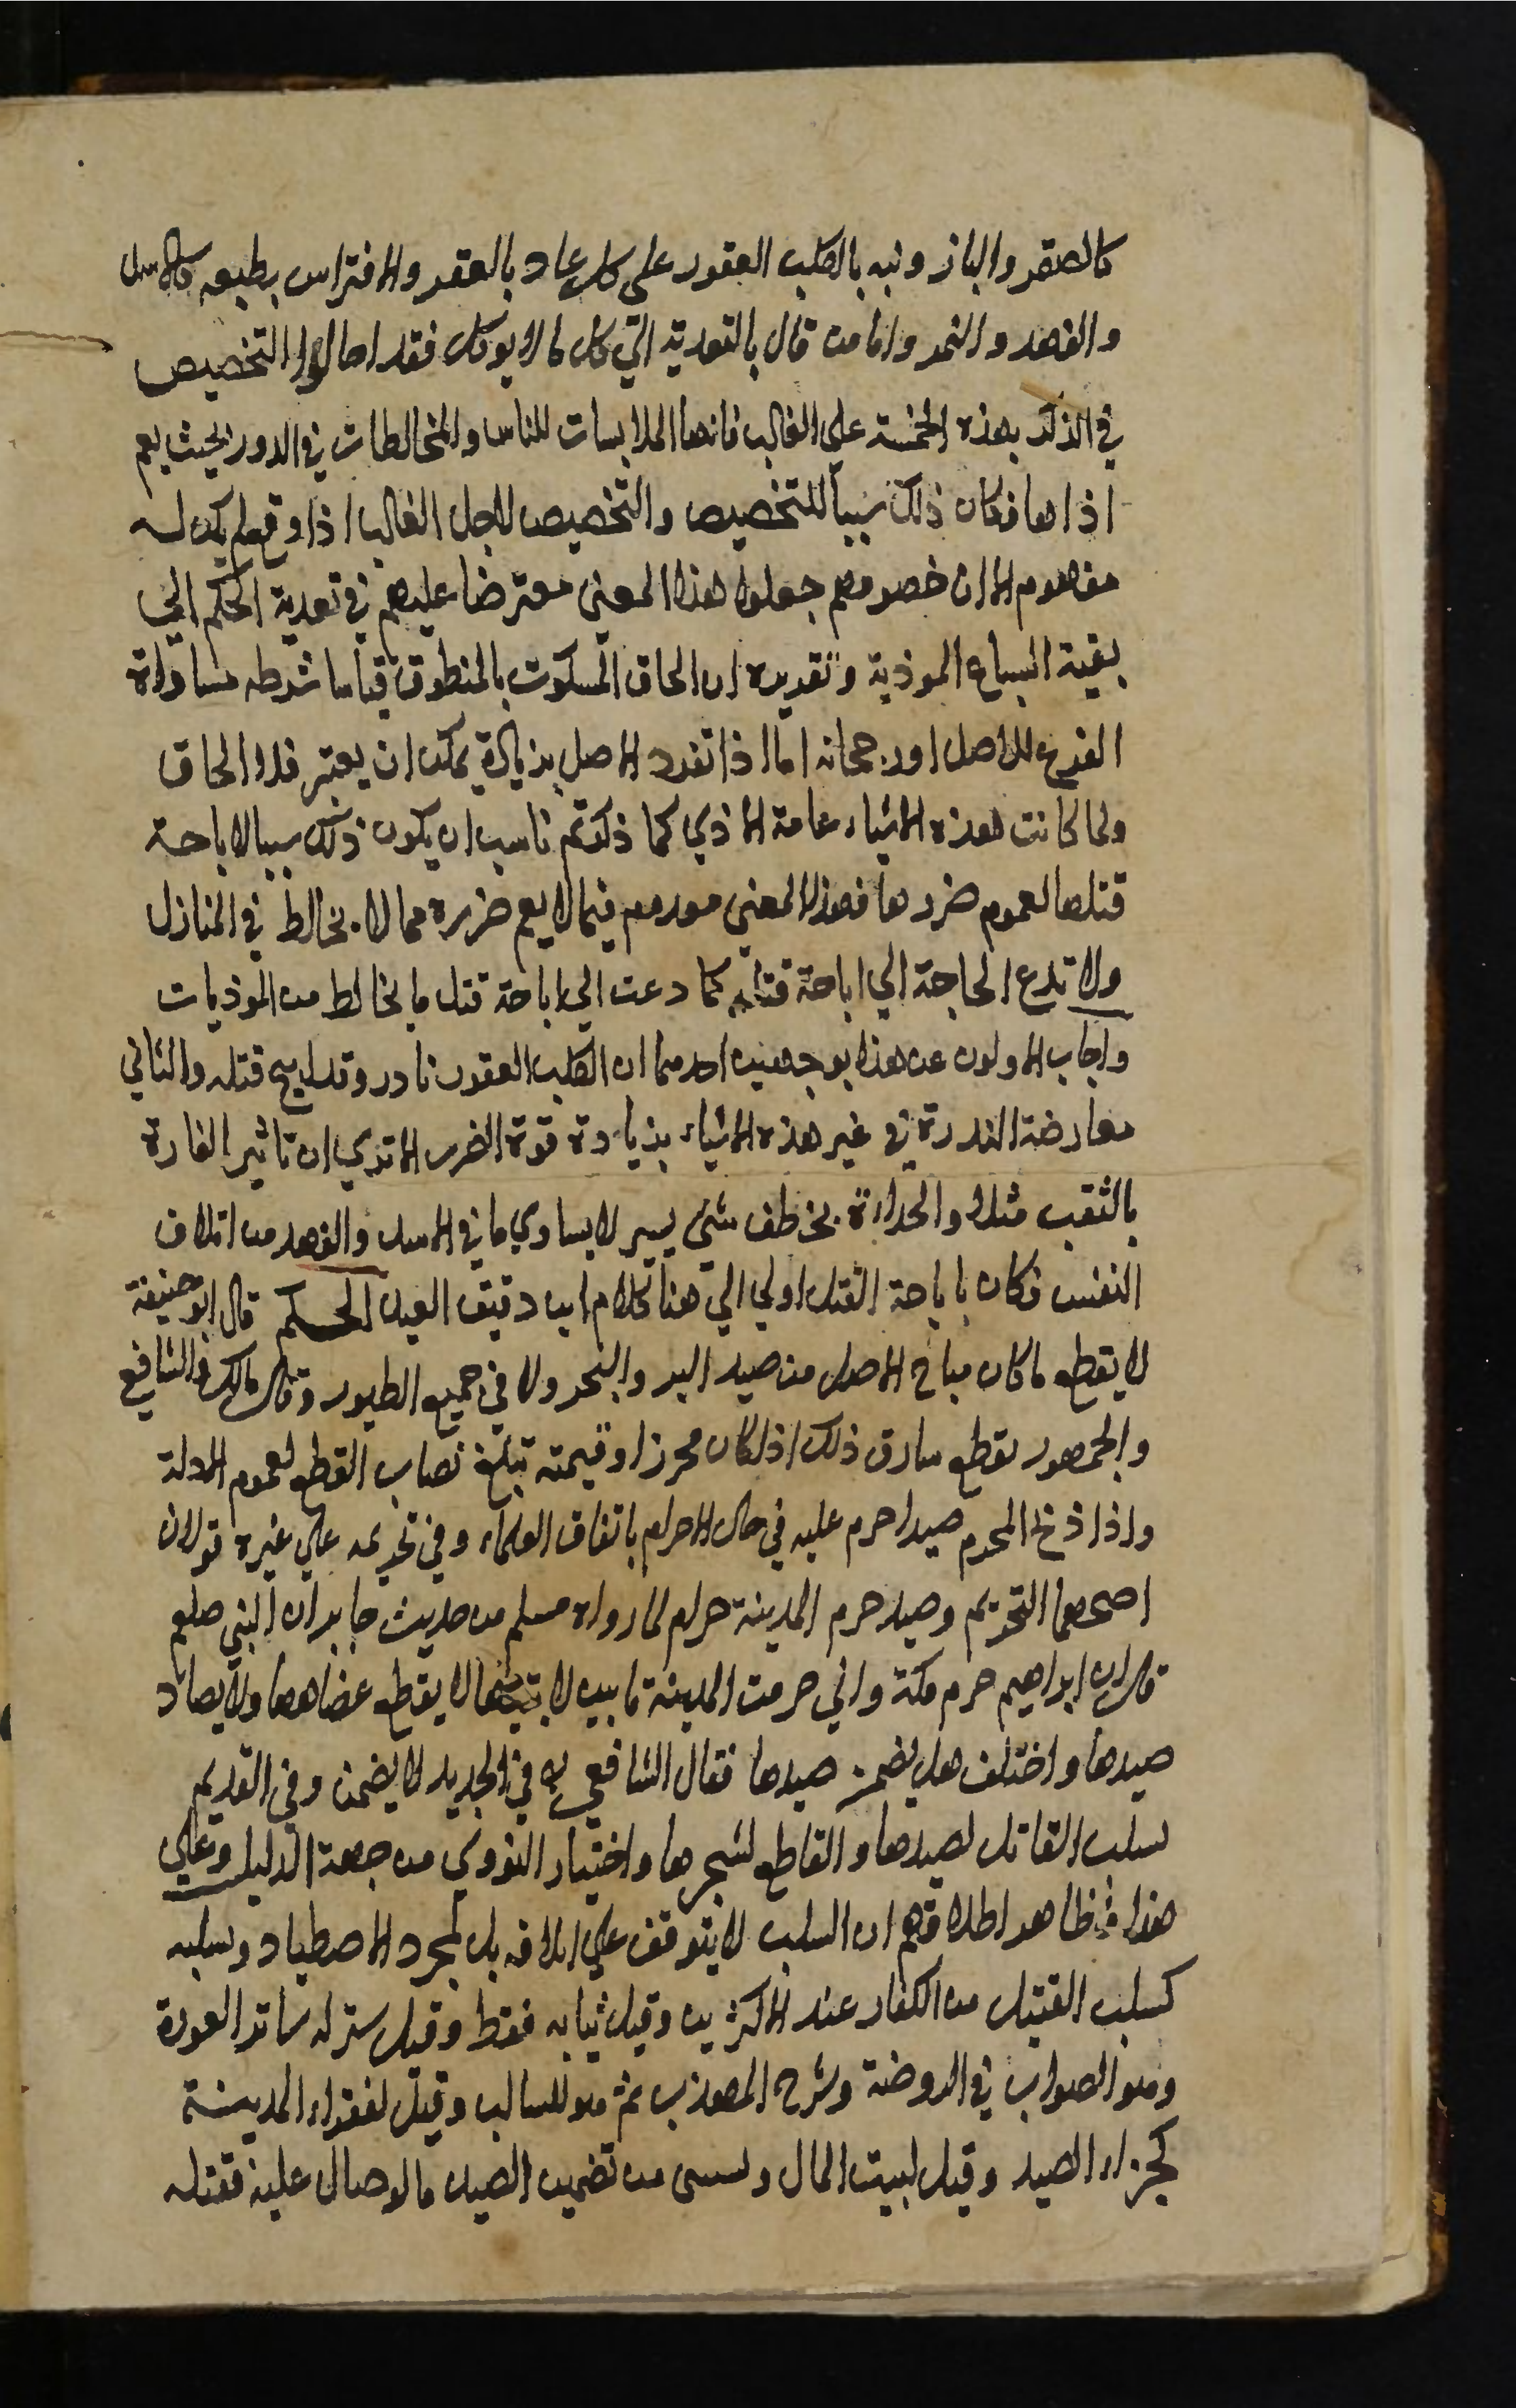 كالصقر والباز ونبه بالكلب العقور على كل عاد بالعقر والافتراس بطبعه كالاسد
والفهد والنمر واما من قال بالتعدية الي كل ما لا يوكل فقد احالوا التخصيص
في الذكر بهذه الخمسة على الغالب فانها الملابسات للناس والمخالطات في الدور بحيث يعم
اذاها فكان ذلك سببا للتخصيص والتخصيص لاجل الغالب اذا وقع لم يكن له
مفهوم الا ان خصومهم جعلوا هذا المعنى معترضا عليهم في تعدية الحكم الي
بقية السباع الموذية وتقديره ان الحاق المسكوت بالمنطوق قياسا شرطه مساواة
الفرع للاصل او رجحانه اما اذا تفرد الاصل بزيادة يمكن ان يعتبر فلا الحاق
ولما كانت هذه الاشياء عامة الاذي كما ذكرتم ناسب ان يكون ذلك سببا لاباحة
قتلها لعموم ضررها فهذا المعني معدوم فيما لا يعم ضرره مما لا يخالط في المنازل
ولا تدع الحاجة الي اباحة قتله كما دعت الي اباحة قتل ما يخالط من الموذيات
واجاب الاولون عن هذا بوجهين احدهما ان الكلب العقور نادر وقد ابيح قتله والثاني
معارضة الندرة في غير هذه الاشياء بزيادة قوة الضرر الا تري ان تاثير الفارة
بالثقب مثلا والحداة بخطف شيء يسير لا يساوي ما في الاسد والفهد من اتلاف
النفس فكان باباحة القتل اولي الي هنا كلام ابن دقيق العيد الحكم قال ابو حنيفة
لا يقطع ما كان مباح الاصل من صيد البر والبحر ولا في جميع الطيور وقال مالك والشافعي
والجمهور يقطع سارق ذلك اذا كان محرزا وقيمته تبلغ نصاب القطع لعموم الادلة
واذا ذبح المحرم صيدا حرم عليه في حال الاحرام باتفاق العلماء وفي تحريمه علي غيره قولان
اصحهما التحريم وصيد حرم المدينة حرام لما رواه مسلم من حديث جابر ان النبي صلعم
قال ان ابراهيم حرم مكة واني حرمت المدينة ما بين لابتيها لا يقطع عضاهها ولا يصاد
صيدها واختلف هل يضمن صيدها فقال الشافعي في الجديد لا يضمن وفي القديم
يسلب القاتل لصيدها والقاطع لشجرها واختيار النووي من جهة الدليل وعلي
هذا فظاهر اطلاقهم ان السلب لا يتوقف علي اتلافه بل لمجرد الاصطياد وسلبه
كسلب القتيل من الكفار عند الاكثرين وقيل ثيابه فقط وقيل يترك له ساتر العورة
وهو الصواب في الروضة وشرح المهذب ثم هو للسالب وقيل لفقراء المدينة
كجزاء الصيد وقيل لبيت المال ويستثنى من تضمين الصيد ما لو صال عليه فقتله